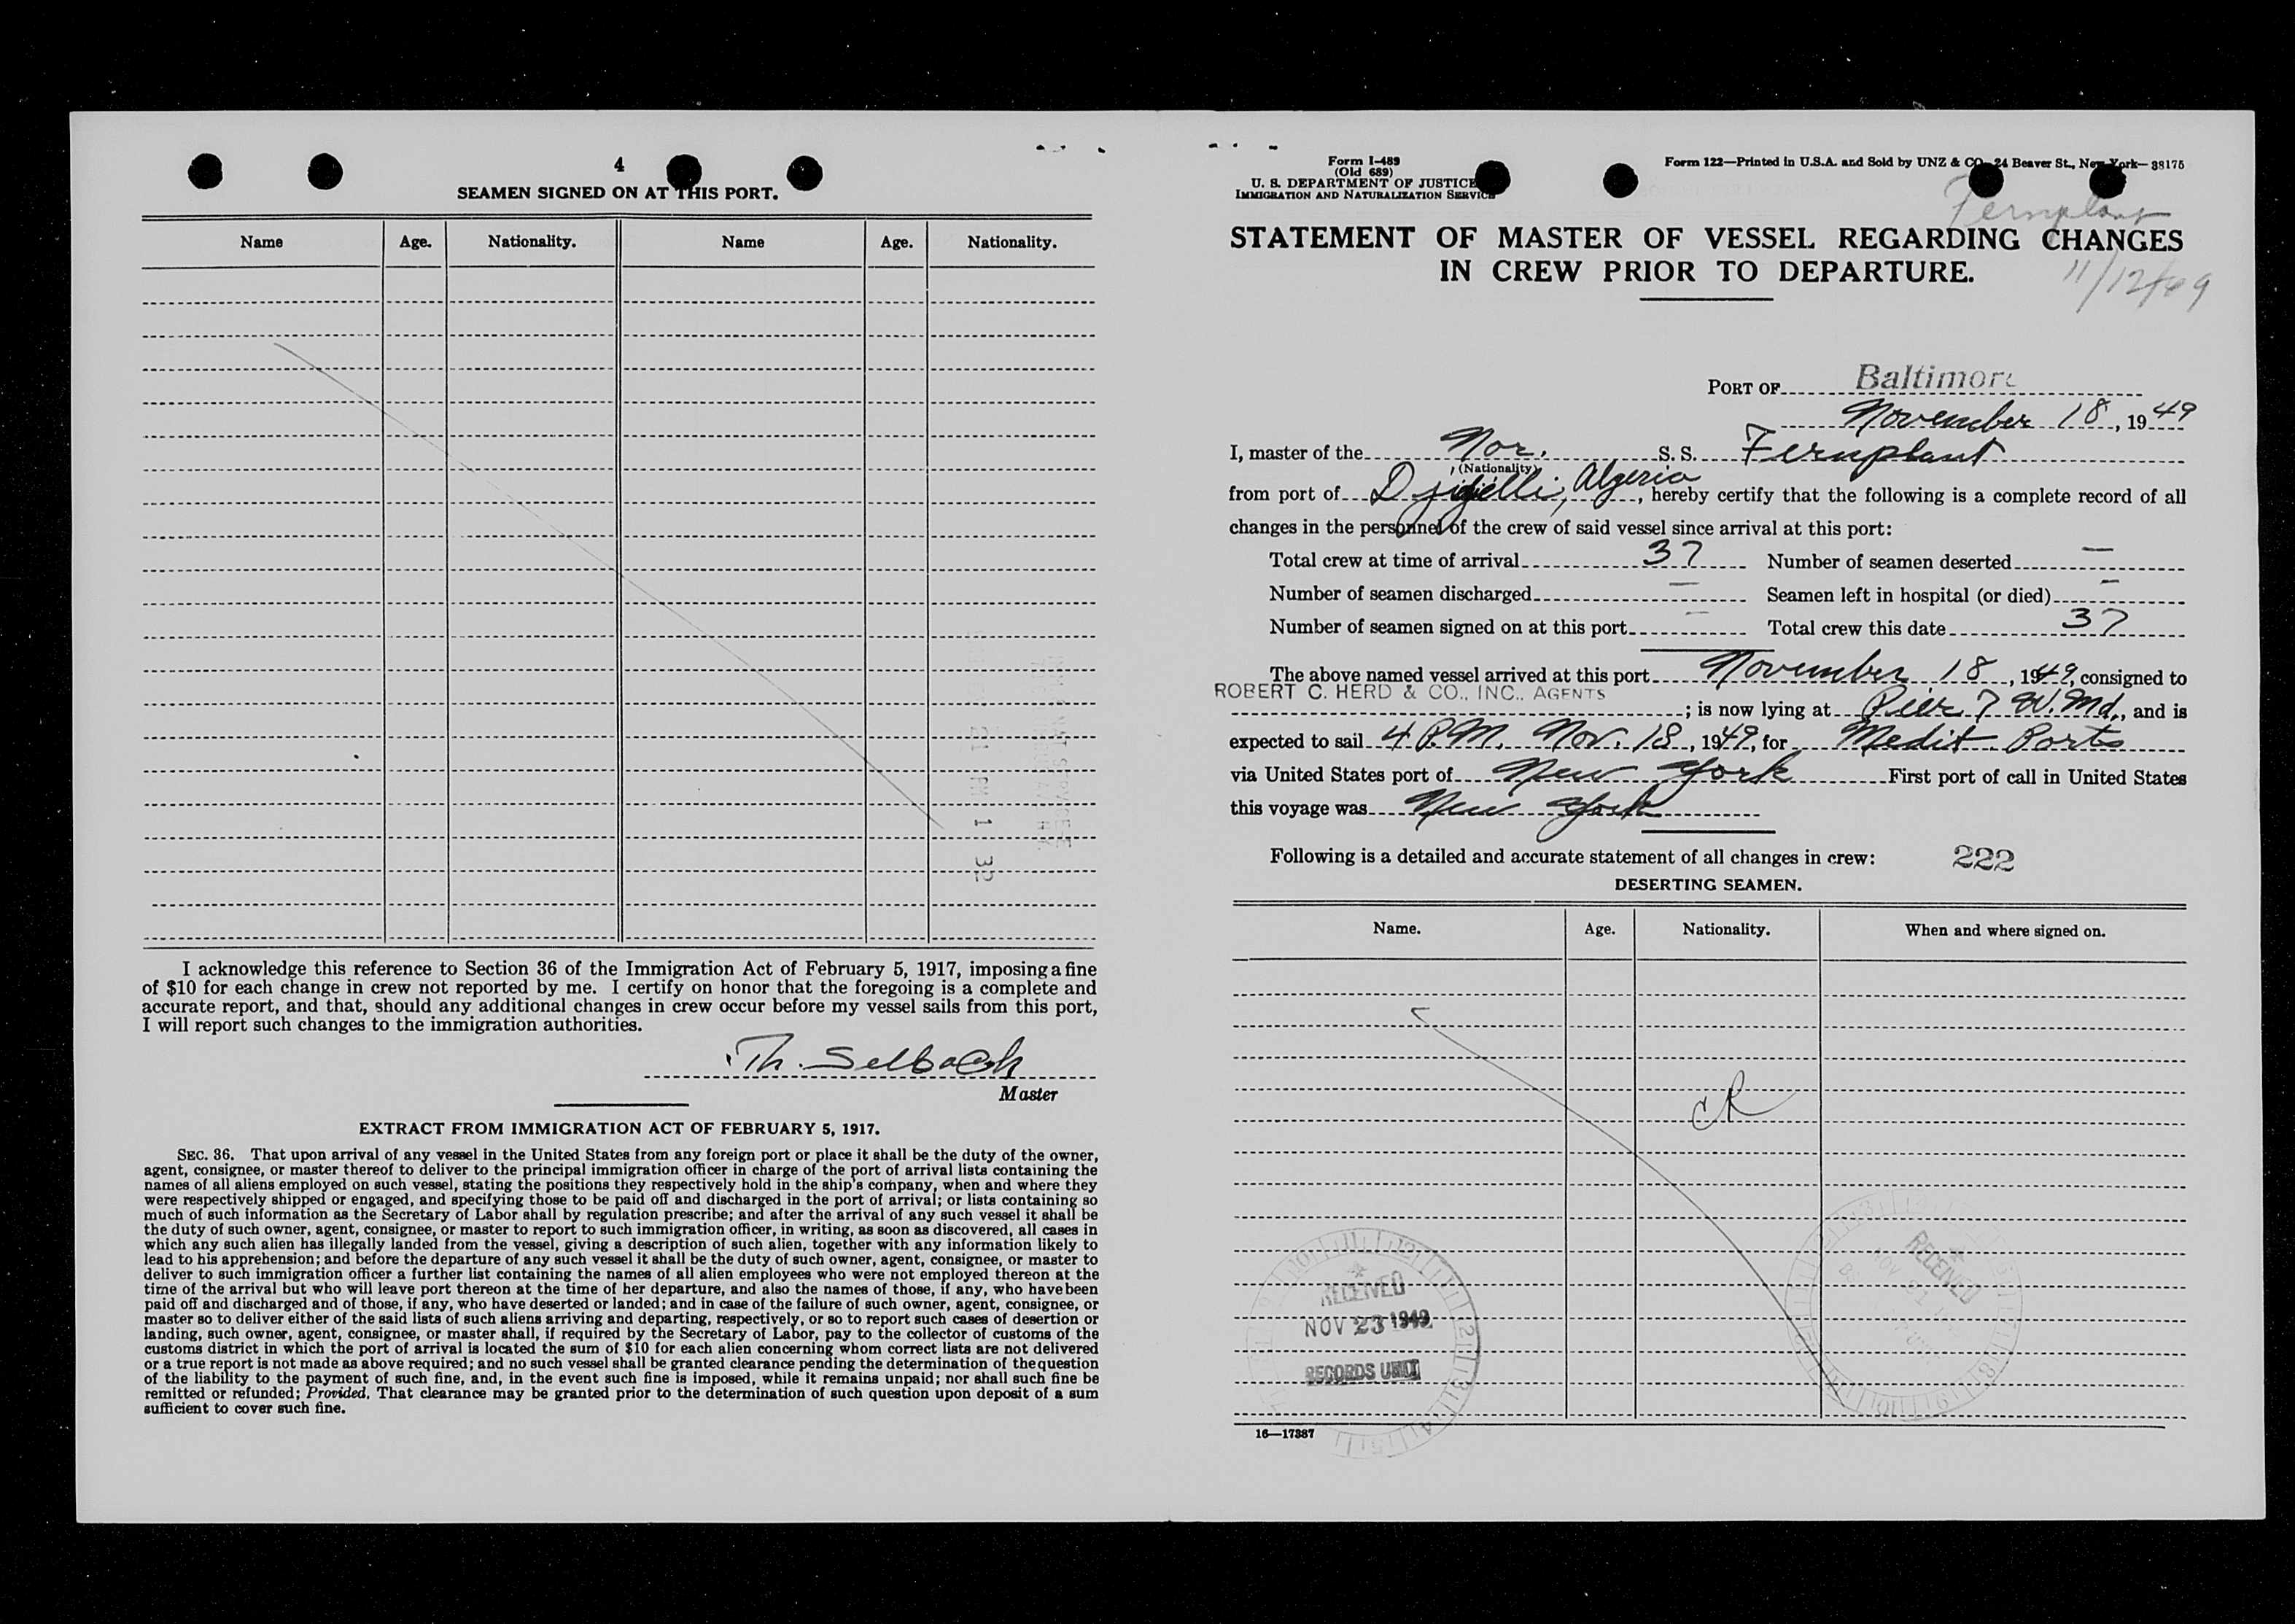 4
SEAMEN SIGNED ON AT THIS PORT.
Name Age. Nationality. Name Age. Nationality.
21 PM 1 32
I acknowledge this reference to Section 36 of the Immigration Act of February 5, 1917, imposing a fine
of $10 for each change in crew not reported by me. I certify on honor that the foregoing is a complete and
accurate report, and that, should any additional changes in crew occur before my vessel sails from this port,
I will report such changes to the immigration authorities.
Th. Selbach
Master
EXTRACT FROM IMMIGRATION ACT OF FEBRUARY 5, 1917.
SEC. 36. That upon arrival of any vessel in the United States from any foreign port or place it shall be the duty of the owner,
agent, consignee, or master thereof to deliver to the principal immigration officer in charge of the port of arrival lists containing the
names of all aliens employed on such vessel, stating the positions they respectively hold in the ship's company, when and where they
were respectively shipped or engaged, and specifying those to be paid off and discharged in the port of arrival; or lists containing so
much of such information as the Secretary of Labor shall by regulation prescribe; and after the arrival of any such vessel it shall be
the duty of such owner, agent, consignee, or master to report to such immigration officer, in writing, as soon as discovered, all cases in
which any such alien has illegally landed from the vessel, giving a description of such alien, together with any information likely to
lead to his apprehension; and before the departure of any such vessel it shall be the duty of such owner, agent, consignee, or master to
deliver to such immigration officer a further list containing the names of all alien employees who were not employed thereon at the
time of the arrival but who will leave port thereon at the time of her departure, and also the names of those, if any, who have been
paid off and discharged and of those, if any, who have deserted or landed; and in case of the failure of such owner, agent, consignee, or
master so to deliver either of the said lists of such aliens arriving and departing, respectively, or so to report such cases of desertion or
landing, such owner, agent, consignee, or master shall, if required by the Secretary of Labor, pay to the collector of customs of the
customs district in which the port of arrival is located the sum of $10 for each alien concerning whom correct lists are not delivered
or a true report is not made as above required; and no such vessel shall be granted clearance pending the determination of the question
of the liability to the payment of such fine, and, in the event such fine is imposed, while it remains unpaid; nor shall such fine be
remitted or refunded; Provided, That clearance may be granted prior to the determination of such question upon deposit of a sum
sufficient to cover such fine.
Form I-489
(Old 689)
U. S. DEPARTMENT OF JUSTICE
IMMIGRATION AND NATURALIZATION SERVICE
Form 122—Printed in U.S.A. and Sold by UNZ & CO. 24 Beaver St., New York—38175
Fernplant
STATEMENT OF MASTER OF VESSEL REGARDING CHANGES
IN CREW PRIOR TO DEPARTURE.
11/12/49
PORT OF Baltimore
November 18, 1949
I, master of the Nor. S. S. Fernplant
(Nationality)
from port of Djidjelli, Algeria, hereby certify that the following is a complete record of all
changes in the personnel of the crew of said vessel since arrival at this port:
Total crew at time of arrival 37 Number of seamen deserted —
Number of seamen discharged — Seamen left in hospital (or died) —
Number of seamen signed on at this port — Total crew this date 37
The above named vessel arrived at this port November 18, 1949, consigned to
ROBERT C. HERD & CO., INC., AGENTS
; is now lying at Pier 7 W. Md., and is
expected to sail 4 P.M. Nov. 18, 1949, for Medit. Ports
via United States port of New York First port of call in United States
this voyage was New York
Following is a detailed and accurate statement of all changes in crew: 222
DESERTING SEAMEN.
Name. Age. Nationality. When and where signed on.
CR
RECEIVED
NOV 23 1949
RECORDS UNIT
RECEIVED
NOV 21
16—17387